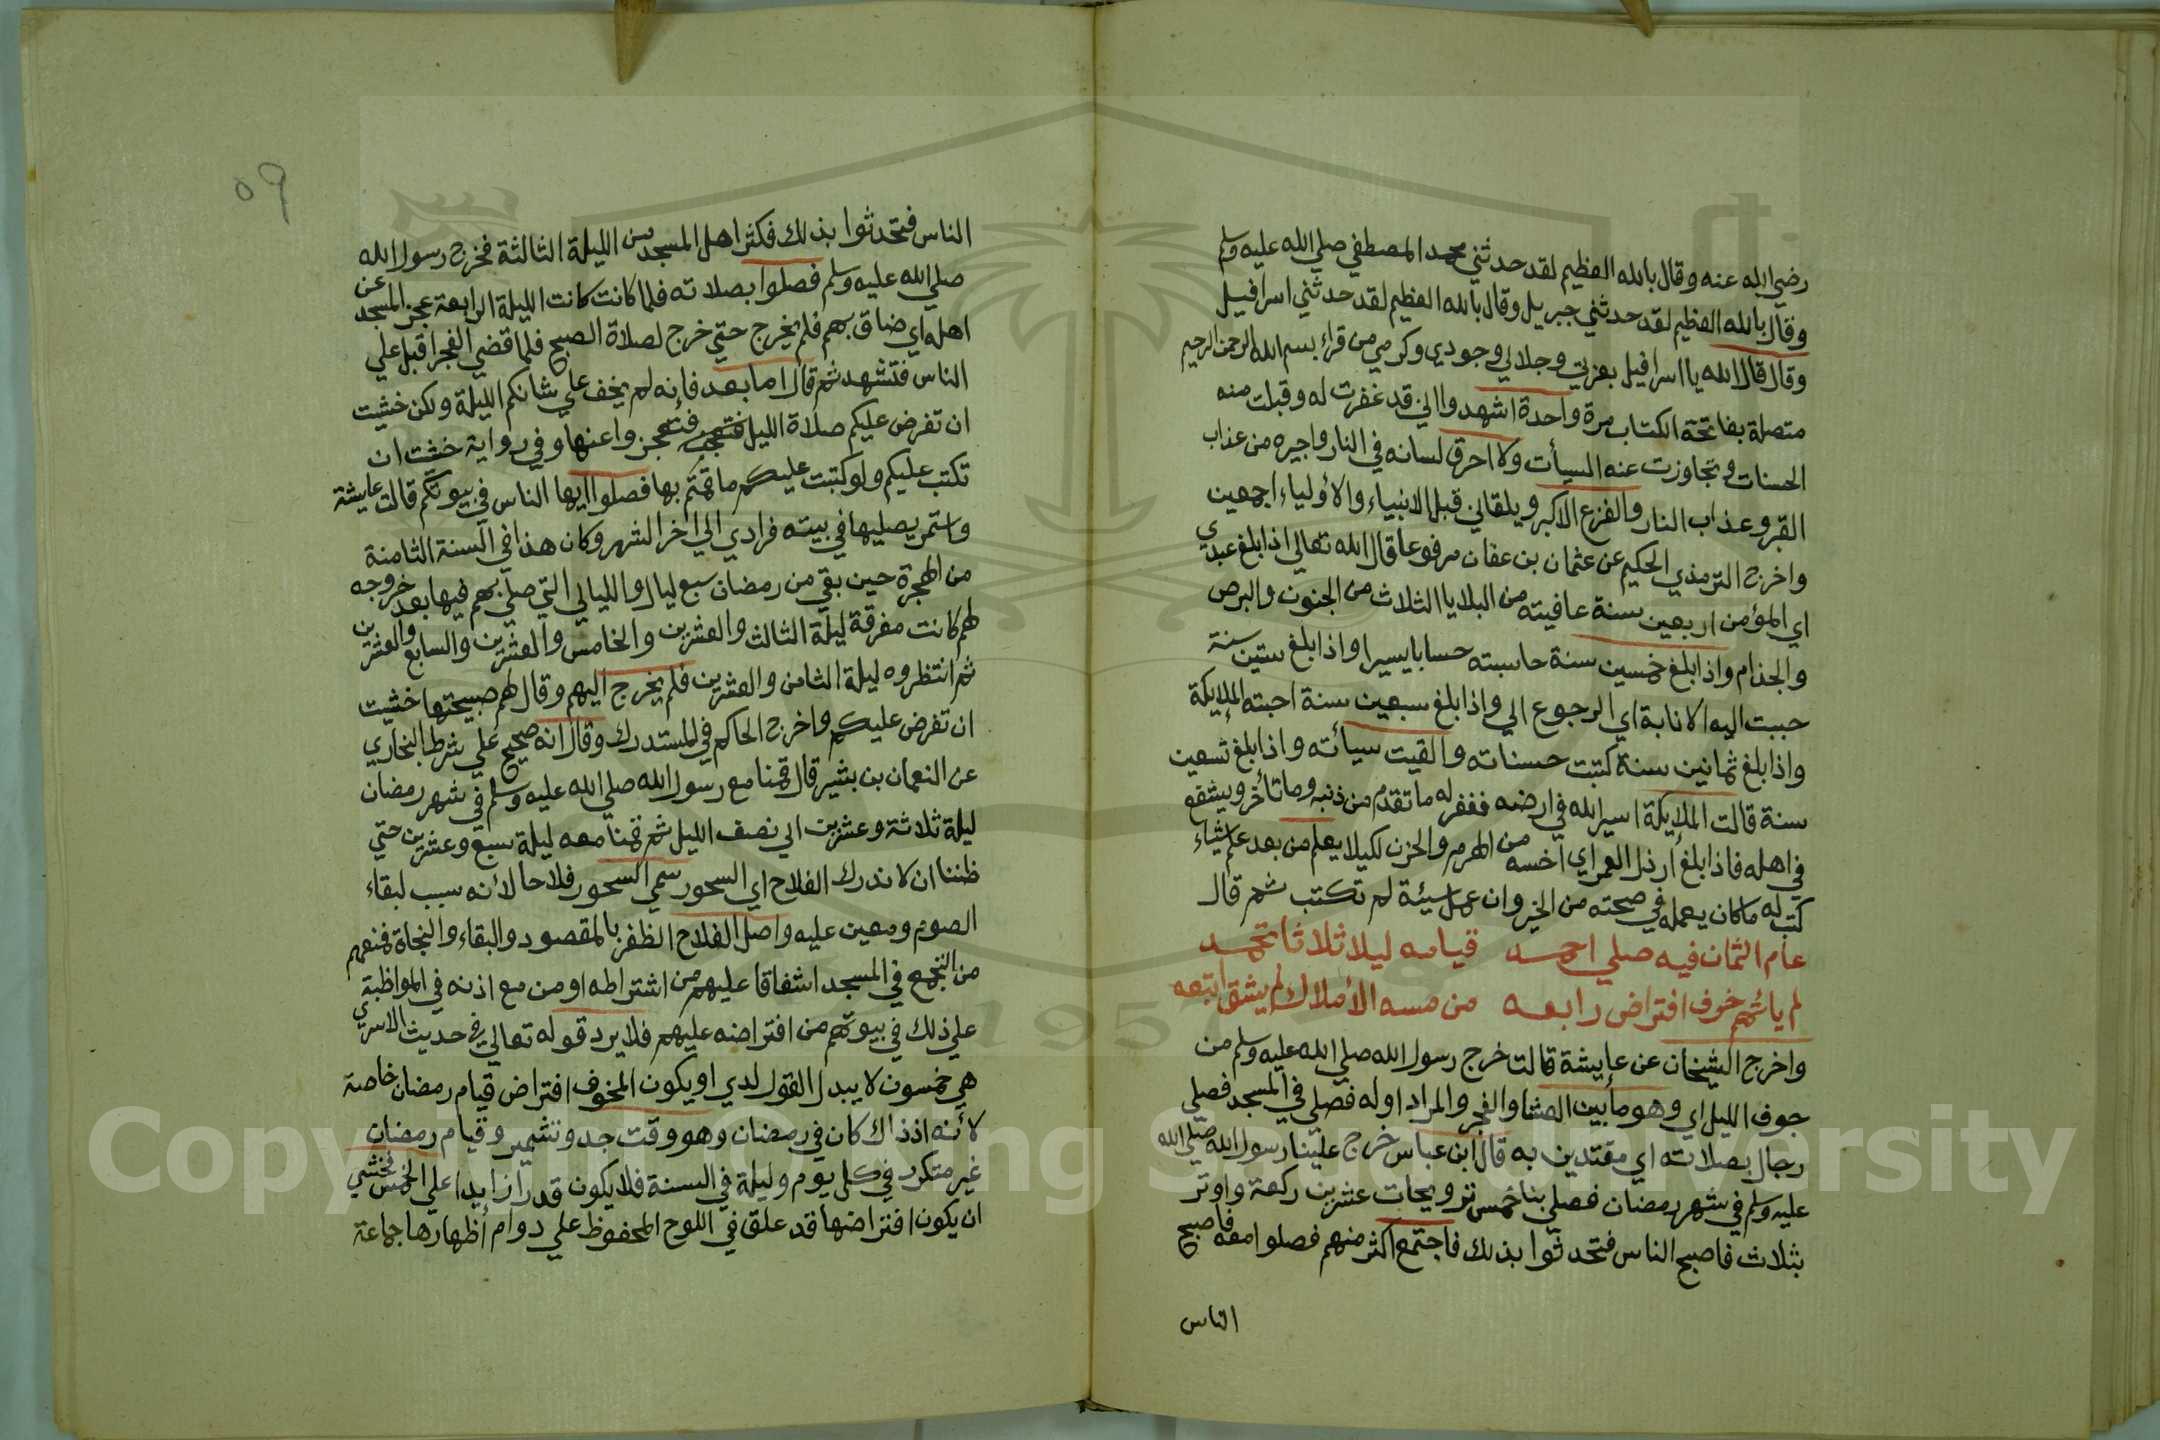 رضي الله عنه وقال بالله العظيم لقد حدثني محمد المصطفي صلي الله عليه وسلم
وقال بالله العظيم لقد حدثني جبريل وقال بالله العظيم لقد حدثني اسرافيل
وقال قال الله يا اسرافيل بعزتي وجلالي وجودي وكرمي من قراء بسم الله الرحمن الرحيم
متصلة بفاتحة الكتاب مرة واحدة اشهدوا اني قد غفرت له وقبلت منه
الحسنات وتجاوزت عنه السيأت ولا احرق لسانه في النار واجيره من عذاب
القبر وعذاب النار والفزع الاكبر ويلقاني قبل الانبياء والأولياء اجمعين
واخرج الترمذي الحكيم عن عثمان بن عفان مرفوعا قال الله تعالي اذا بلغ عبدي
اي المؤمن اربعين سنة عافيته من البلايا الثلاث من الجنون والبرص
والجذام واذا بلغ خمسين سنة حاسبته حسابا يسيرا واذا بلغ ستين سنة
حببت اليه الانابة اي الرجوع الي واذا بلغ سبعين سنة احبته الملايكة
واذا بلغ ثمانين سنة كتبت حسناته والقيت سيأته واذا بلغ تسعين
سنة قالت الملايكة اسير الله في ارضه فغفر له ما تقدم من ذنبه وما تأخر ويشفع
في اهله فاذا بلغ أرذل العمر اي اخسه من الهرم والحزن لكيلا يعلم من بعد علم شياء
كتب له ما كان يعمله في صحته من الخير وان عمل سيئة لم تكتب ثم قال
عام الثمان فيه صلي احمد قيامه ليلا ثلاثا تحمد
لم يأتهم خوف افتراض رابعه من مسه الأملاك لم يشق اتبعه
واخرج الشيخان عن عايشة قالت خرج رسول الله صلي الله عليه وسلم من
جوف الليل اي وهو ما بين العشا والفجر والمراد اوله فصلي في المسجد فصلي
رجال بصلاته اي مقتدين به قال ابن عباس خرج علينا رسول الله صلي الله
عليه وسلم في شهر رمضان فصلي بنا خمس ترويحات عشرين ركعة واوتر
بثلاث فاصبح الناس فتحدثوا بذلك فاجتمع اكثر منهم فصلوا معه فاصبح
الناس
٥٩
الناس فتحدثوا بذلك فكثر اهل المسجد من الليلة الثالثة فخرج رسول الله
صلي الله عليه وسلم فصلوا بصلاته فلما كانت كانت الليلة الرابعة عجز المسجد عن
اهله اي ضاق بهم فلم يخرج حتي خرج لصلاة الصبح فلما قضي الفجر اقبل علي
الناس فتشهد ثم قال اما بعد فانه لم يخف علي شانكم الليلة ولكن خشيت
ان تفرض عليكم صلاة الليل فتعجزوا عنها وفي رواية خشت ان
تكتب عليكم ولو كتبت عليكم ما قمتم بها فصلوا ايها الناس في بيوتكم قالت عايشة
واستمر يصليها في بيته فرادي الي اخر الشهر وكان هذا في السنة الثامنة
من الهجرة حين بقي من رمضان سبع ليال والليالي التي صلي بهم فيها بعد خروجه
لهم كانت مفرقة ليلة الثالث والعشرين والخامس والعشرين والسابع والعشرين
ثم انتظروه ليلة الثامن والعشرين فلم يخرج اليهم وقال لهم صبيحتها خشيت
ان تفرض عليكم واخرج الحاكم في المستدرك وقال انه صحيح علي شرط البخاري
عن النعمان بن بشير قال قمنا مع رسول الله صلي الله عليه وسلم في شهر رمضان
ليلة ثلاثة وعشرين الي نصف الليل ثم قمنا معه ليلة سبع وعشرين حتي
ظننا ان لا ندرك الفلاح اي السحور سمي السحور فلاحا لأنه سبب لبقاء
الصوم ومعين عليه واصل الفلاح الظفر بالمقصود والبقاء والنجاة فمنعهم
من التجمع في المسجد اشفاقا عليهم من اشتراطه او من مع اذنه في المواظبة
علي ذلك في بيوتهم من افتراضه عليهم فلا يرد قوله تعالي في حديث الاسري
هي خمسون لا يبدل القول لدي او يكون المخوف افتراض قيام رمضان خاصة
لأنه اذ ذاك كان في رمضان وهو وقت جد وتشمير وقيام رمضان
غير متكرر في كل يوم وليلة في السنة فلا يكون قدرا زايدا علي الخمس فخشي
ان يكون افتراضها قد علق في اللوح المحفوظ علي دوام أظهارها جماعة
1957
Copyright © King Saud University